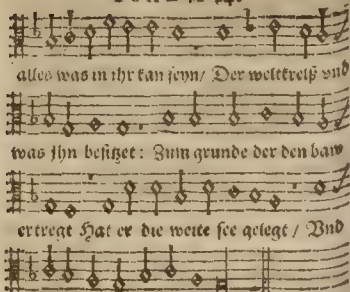 alles was in ihr kan seyn/ Der weltkreiß vnd
was jhn besitzet: Zum grunde der den baw
ertregt Hat er die weite see gelegt / Vnd